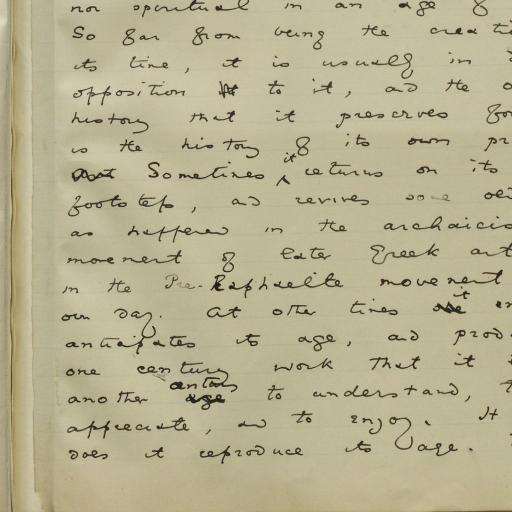 nor spiritual in an age of
So far from being the creati
its time, it is usually in
opposition to it, and the o
history that it preserves fo
is the history of its own pr
Sometimes it returns on its
footsteps, and revives some
as happened in the archaicis
movement of later Greek art
in the Pre-Raphaelite movement
own day. At other times it en
anticipates its age, and prod
one century work that it
another century to understand, t
appreciate, and to enjoy. It
does it reproduce its age.